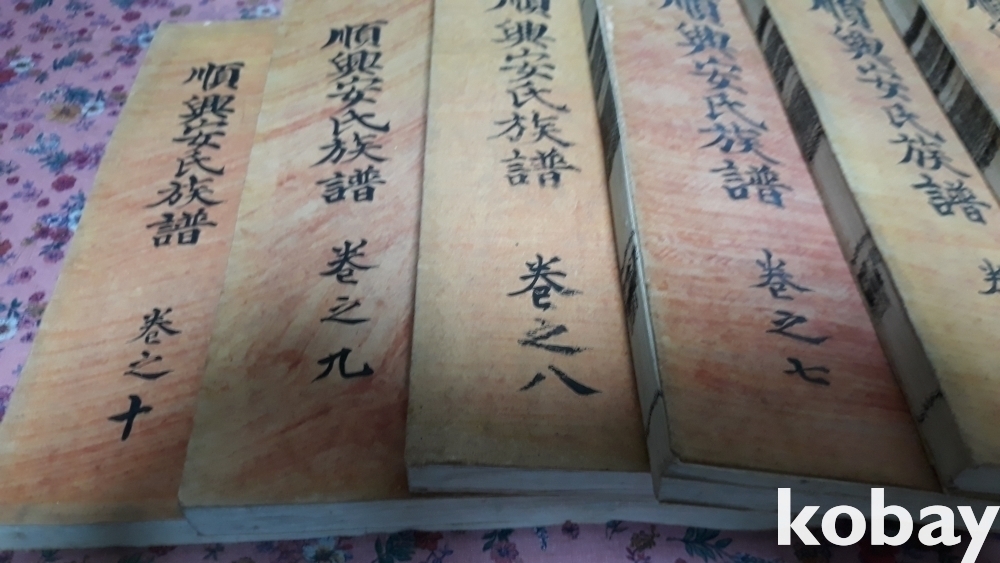 順興安氏族譜 卷之十
順興安氏族譜 卷之九
順興安氏族譜 卷之八
順興安氏族譜 卷之七
順興安氏族譜 卷
kobay